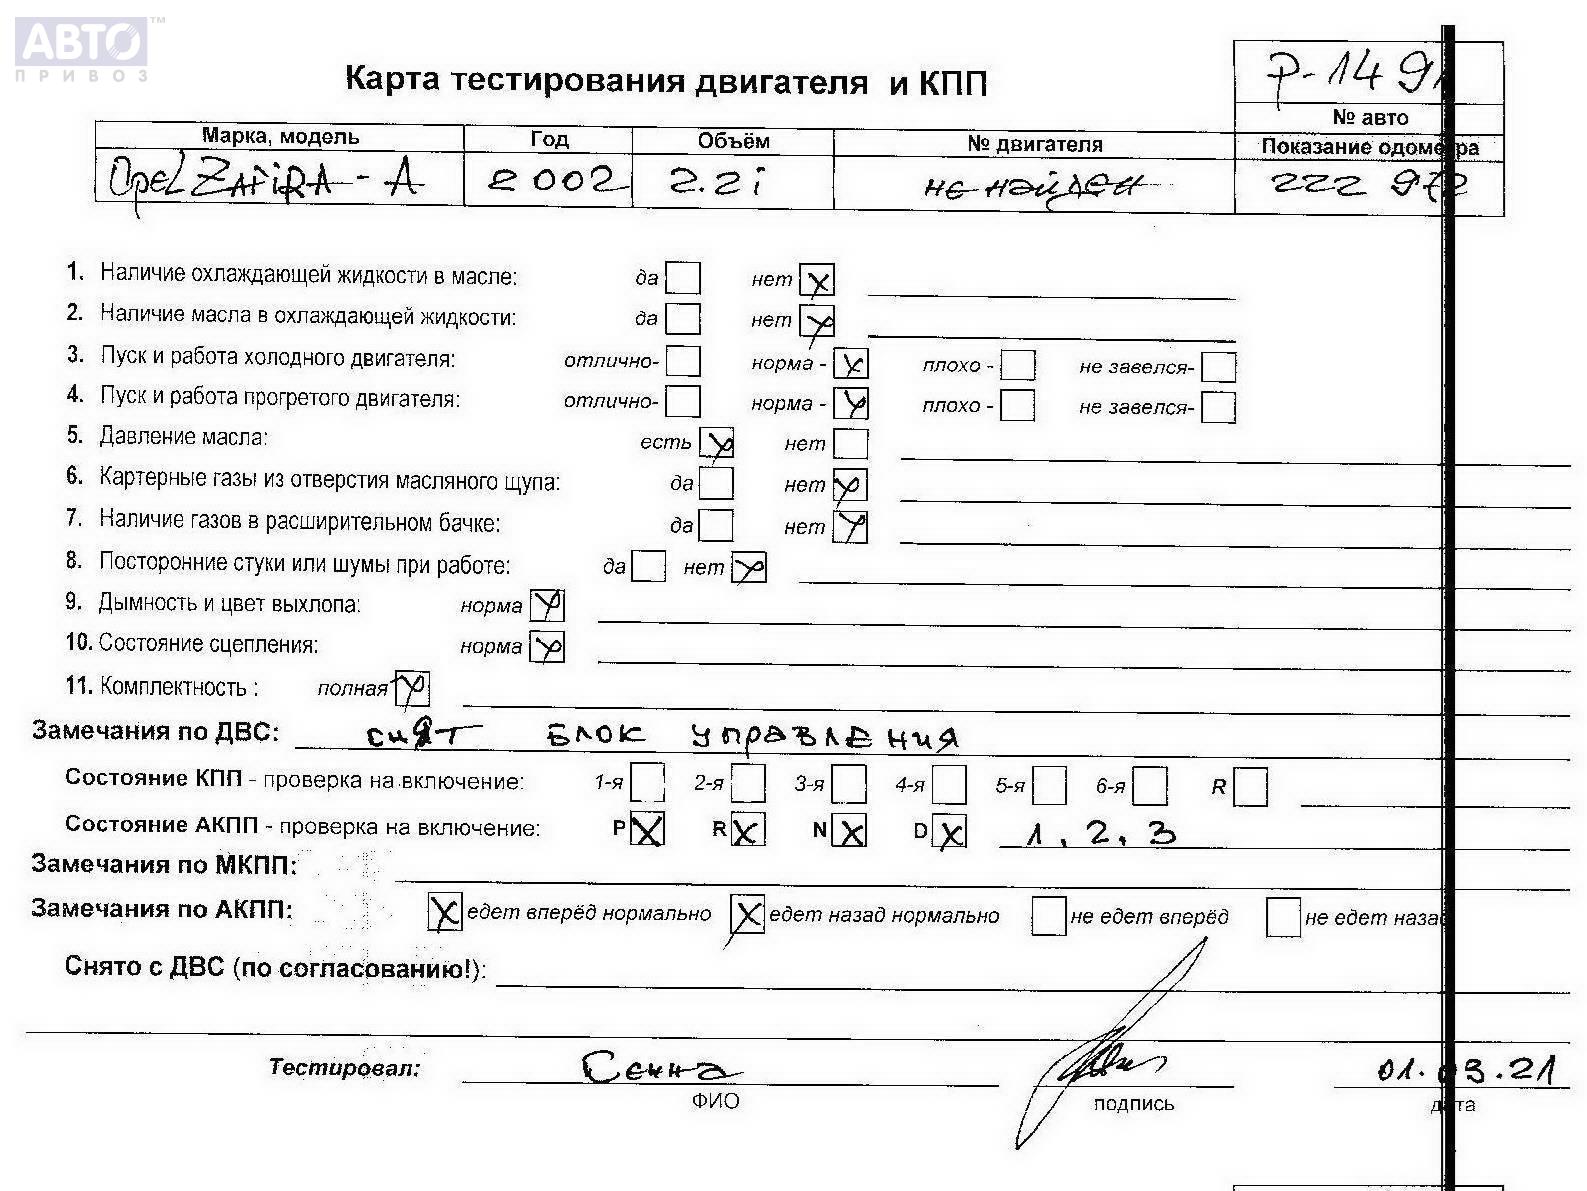 АВТО™
ПРИВОЗ
Карта тестирования двигателя и КПП
Р-149
№ авто
Марка, модель Год Объём № двигателя Показание одометра
Opel ZAFIRA-A 2002 2.2i не найден 222 972
1. Наличие охлаждающей жидкости в масле: да нет X
2. Наличие масла в охлаждающей жидкости: да нет X
3. Пуск и работа холодного двигателя: отлично- норма - X плохо - не завелся-
4. Пуск и работа прогретого двигателя: отлично- норма - X плохо - не завелся-
5. Давление масла: есть X нет
6. Картерные газы из отверстия масляного щупа: да нет X
7. Наличие газов в расширительном бачке: да нет X
8. Посторонние стуки или шумы при работе: да нет X
9. Дымность и цвет выхлопа: норма X
10. Состояние сцепления: норма X
11. Комплектность : полная X
Замечания по ДВС: снят блок управления
Состояние КПП - проверка на включение: 1-я 2-я 3-я 4-я 5-я 6-я R
Состояние АКПП - проверка на включение: P X R X N X D X 1, 2, 3
Замечания по МКПП:
Замечания по АКПП: X едет вперёд нормально X едет назад нормально не едет вперёд не едет назад
Снято с ДВС (по согласованию!):
Тестировал: Сенна 01.03.21
ФИО подпись дата